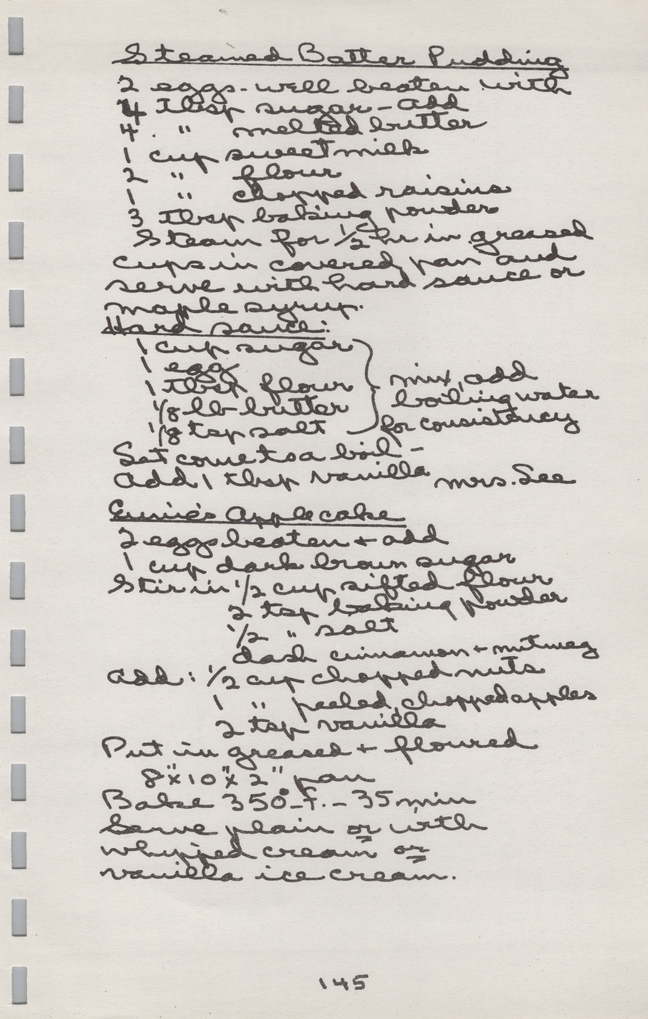 Steamed Batter Pudding
2 eggs - well beaten with
4 tbsp sugar - add
4 " melted butter
1 cup sweet milk
2 " flour
1 " chopped raisins
3 tbsp baking powder
Steam for 1/2 hr in greased
cups in covered pan and
serve with hard sauce or
maple syrup.
Hard sauce:
1 cup sugar
1 egg
1 tbsp flour
1/8 lb butter
1/8 tsp salt
mix, add
boiling water
for consistancy
Set come to a boil -
Add 1 tbsp vanilla Mrs. See
Eunie's Applecake
2 eggs beaten + add
1 cup dark brown sugar
Stir in 1/2 cup sifted flour
2 tsp baking powder
1/2 " salt
dash cinnamon + nutmeg
add: 1/2 cup chopped nuts
1 " peeled, chopped apples
2 tsp vanilla
Put in greased + floured
8" x 10" x 2" pan
Bake 350° F. - 35 min
Serve plain or with
whipped cream or
vanilla ice cream.
145